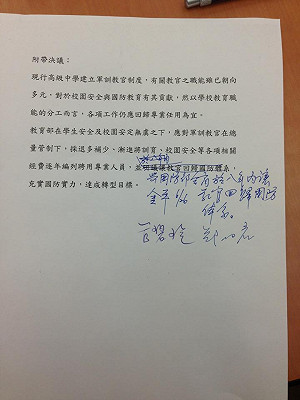 附帶決議:
現行高級中學建立軍訓教官制度,有關教官之職能雖已朝向
多元,對於校園安全與國防教育有其貢獻,然以學校教育職
能的分工而言,各項工作仍應回歸專業任用為宜。
教育部在學生安全及校園安定無虞之下,應對軍訓教官在總
量管制下,採退多補少、漸進將訓育、校園安全等各項相關
經費逐年編列聘用專業人員,並
教官回歸國防體系,
充實國防實力,達成轉型目標。
與國防部
於八年內讓
教官回歸國防
體系。
管碧玲